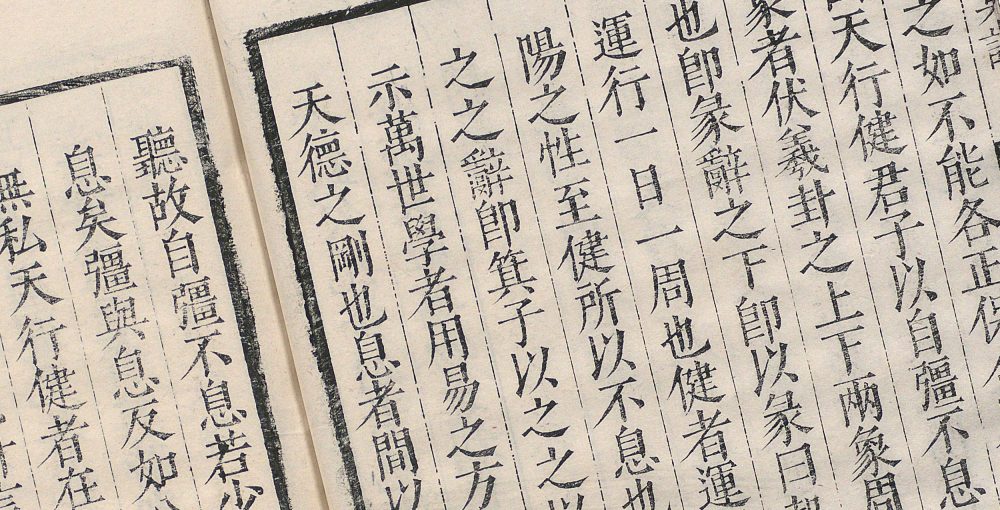 之如不能各正保
天行健君子以自彊不息
象者伏羲卦之上下兩象周
也卽彖辭之下卽以彖曰起
運行一日一周也健者運
陽之性至健所以不息也
之之辭卽箕子以之之以
示萬世學者用易之方
天德之剛也息者間以
聽故自彊不息若少
息矣彊與息反如
無私天行健者在